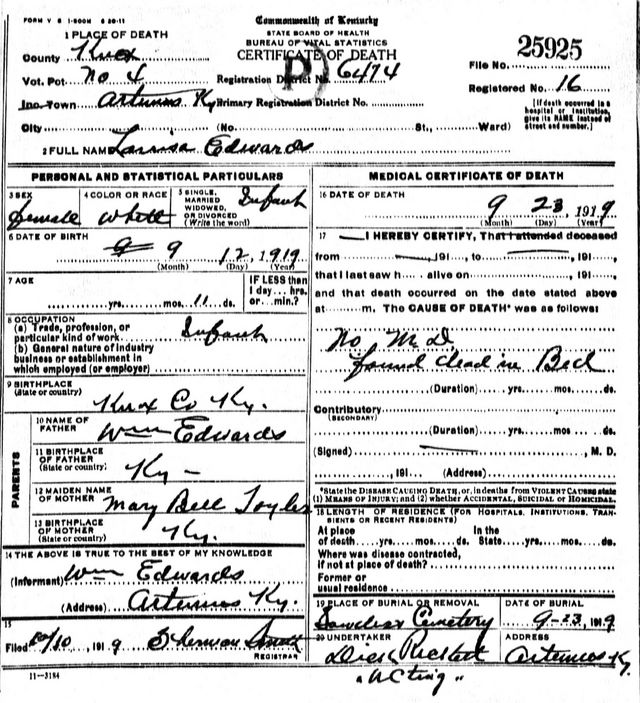 FORM V S 1-500M 8 20-11
Commonwealth of Kentucky
STATE BOARD OF HEALTH
BUREAU OF VITAL STATISTICS
CERTIFICATE OF DEATH
25925
File No.
1 PLACE OF DEATH
County Knox
Vot. Pct. No 4
Registration District No. 6474
Registered No. 16
Inc. Town Artemus Ky
Primary Registration District No.
[If death occurred in a hospital or institution, give its NAME instead of street and number.]
City (No. St., Ward)
2 FULL NAME Edwards
PERSONAL AND STATISTICAL PARTICULARS
3 SEX
female
4 COLOR OR RACE
White
5 SINGLE, MARRIED WIDOWED, OR DIVORCED (Write the word)
Infant
6 DATE OF BIRTH
9 12, 1919
(Month) (Day) (Year)
7 AGE
yrs. mos. 11 ds.
IF LESS than 1 day... hrs. or... min.?
8 OCCUPATION
(a) Trade, profession, or particular kind of work Infant
(b) General nature of industry business or establishment in which employed (or employer)
9 BIRTHPLACE
(State or country)
Knox Co Ky.
PARENTS
10 NAME OF FATHER
Wm Edwards
11 BIRTHPLACE OF FATHER
(State or country)
Ky —
12 MAIDEN NAME OF MOTHER
Mary Bell
13 BIRTHPLACE OF MOTHER
(State or country)
Ky.
14 THE ABOVE IS TRUE TO THE BEST OF MY KNOWLEDGE
(Informant) Wm Edwards
(Address) Artemus Ky.
15
Filed 10/10, 1919 Sherman Smith
REGISTRAR
11—3184
MEDICAL CERTIFICATE OF DEATH
16 DATE OF DEATH
9 23, 1919
(Month) (Day) (Year)
17 I HEREBY CERTIFY, That I attended deceased
from , 191 , to , 191 ,
that I last saw h alive on , 191 ,
and that death occurred on the date stated above
at m. The CAUSE OF DEATH* was as follows:
No M D
found dead in Bed
(Duration) yrs. mos. ds.
Contributory
(SECONDARY)
(Duration) yrs. mos. ds.
(Signed) , M. D.
, 191 (Address)
*State the DISEASE CAUSING DEATH, or, in deaths from VIOLENT CAUSES state (1) MEANS OF INJURY; and (2) whether ACCIDENTAL, SUICIDAL or HOMICIDAL.
18 LENGTH OF RESIDENCE (FOR HOSPITALS, INSTITUTIONS, TRANSIENTS OR RECENT RESIDENTS)
At place of death yrs. mos. ds.
In the State yrs. mos. ds.
Where was disease contracted, if not at place of death?
Former or usual residence
19 PLACE OF BURIAL OR REMOVAL
Cemetery
DATE OF BURIAL
9-23, 1919
20 UNDERTAKER
Dick
"Acting"
ADDRESS
Artemus Ky.